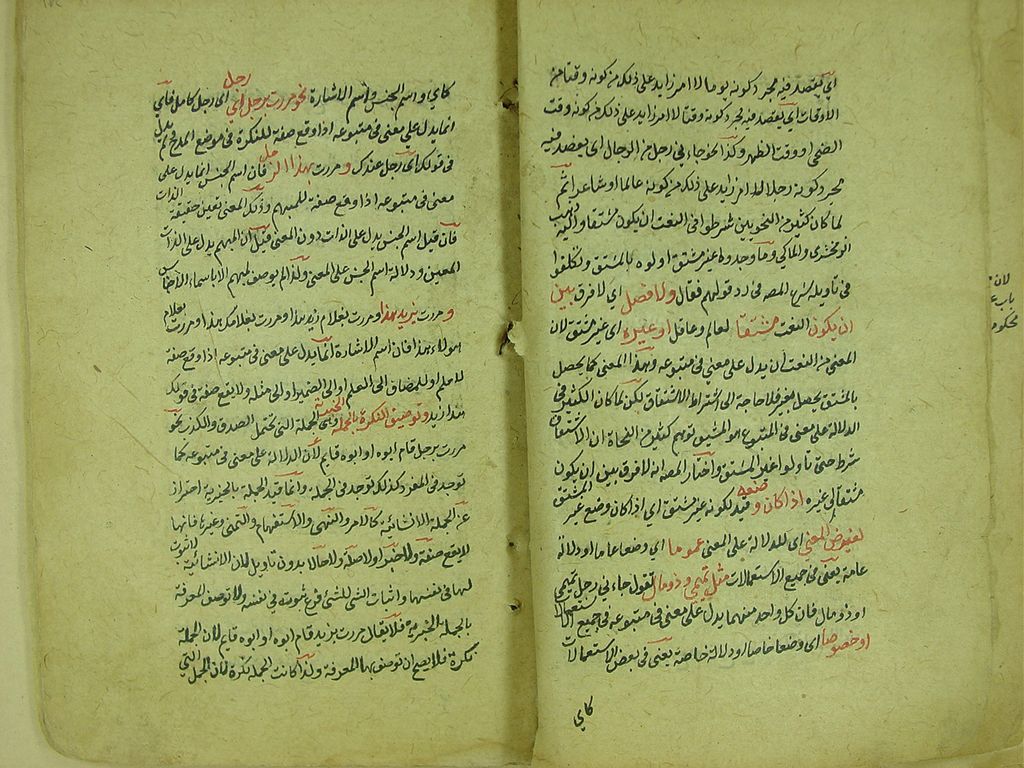 اي يقصد فيه مجرد كونه يوما لا امر زايد على ذلك من كونه وقتا من
الاوقات اي يقصد فيه مجرد كونه وقتا لا امر زايد على ذلك من كونه وقت
الضحى او وقت الظهر وكذا نحو جاءني رجل من الرجال اي يقصد فيه
مجرد كونه رجلا لا امر زايد على ذلك من كونه عالما او شاعرا ثم
لما كان كثير من النحويين شرطوا في النعت ان يكون مشتقا واليه ذهب
الزمخشري والمالكي وما وجدوه غير مشتق اولوه بالمشتق وتكلفوا
في تاويله اشار المصه في رد قولهم فقال ولا فصل اي لا فرق بين
ان يكون النعت مشتقا كعالم وعاقل او غيره اي غير مشتق لان
المعنى من النعت ان يدل على معنى في متبوعه وهذا المعنى كما يحصل
بالمشتق يحصل بغيره فلا حاجة الى اشتراط الاشتقاق لكن لما كان الكثير في
الدلالة على معنى في المتبوع هو المشتق توهم كثير من النحاة ان الاشتقاق
شرط حتى تاولوا غير المشتق واختار المصه انه لا فرق بين ان يكون
مشتقا او غيره اذا كان وضعه قيد لكونه غير مشتق اي اذا كان وضع غير المشتق
لغرض المعنى اي للدلالة على المعنى عموما اي وضعا عاما او دلالة
عامة يعني في جميع الاستعمالات مثل تميمي وذو مال تقول جاءني رجل تميمي
او ذو مال فان كل واحد منهما يدل على معنى في متبوعه في جميع الاستعمالات
او خصوصا اي وضعا خاصا او دلالة خاصة يعني في بعض الاستعمالات
كاي
كاي واسم الجنس واسم الاشارة نحو مررت برجل اي رجل اي رجل كامل فاي
انما يدل على معنى في متبوعه اذا وقع صفة للنكرة في موضع المدح ولم يدل
في قولك اي رجل عندك و مررت بهذا الرجل فان اسم الجنس انما يدل على
معنى في متبوعه اذا وقع صفة للمبهم وذلك المعنى تعين حقيقة الذات
فان قيل اسم الجنس يدل على الذات دون المعنى قيل ان المبهم يدل على الذات
المعين ودلالة اسم الجنس على المعنى ولذا لم يوصف المبهم الا باسماء الاجناس
و مررت بزيد هذا ومررت بغلام زيد هذا ومررت بغلامك هذا ومررت بغلام
مولاه هذا فان اسم الاشارة انما يدل على معنى في متبوعه اذا وقع صفة
لاعلم او للمضاف الى العلم او الى الضمير او الى مثله ولا يقع صفة في قولك
هذا زيد وتوصف النكرة بالجملة الخبرية وهي الجملة التي تحتمل الصدق والكذب نحو
مررت برجل قام ابوه او ابوه قايم لان الدلالة على معنى في متبوعه كما
توجد في المفرد كذلك توجد في الجملة وانما قيد الجملة بالخبرية احتراز
عن الجملة الانشائية كالامر والنهي والاستفهام والتمني وغيرها فانها
لا يقع صفة ولا خبرا ولا صلة ولا حالا بدون تاويل لان الانشائية لا ثبوت
لها في نفسها واثبات الشي للشي فرع ثبوته في نفسه ولا توصف المعرفة
بالجملة الخبرية فلا يقال مررت بزيد قام ابوه او ابوه قايم لان الجملة
نكرة فلا يصح ان توصف بها المعرفة ولذا كانت الجملة نكرة لان الجمل التي
لان
باب